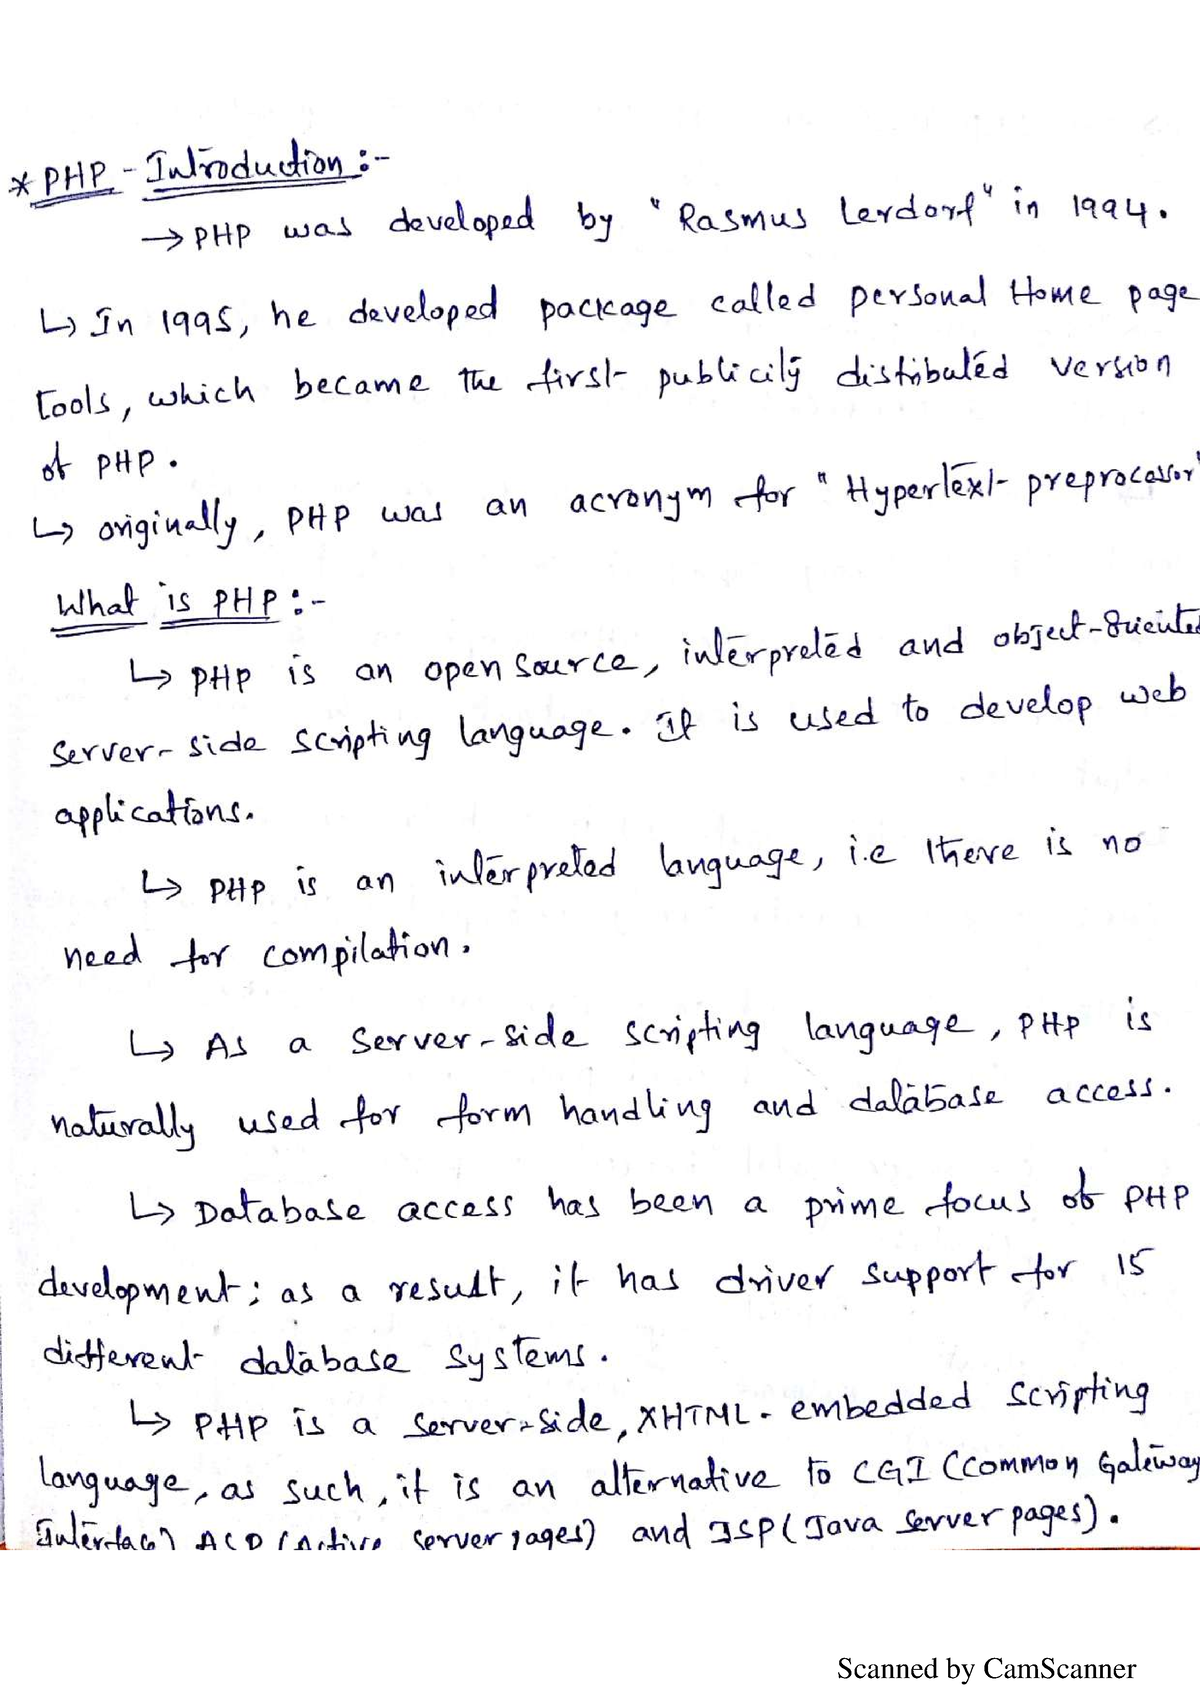 * PHP - Introduction :-
→ PHP was developed by "Rasmus Lerdorf" in 1994.
↳ In 1995, he developed package called personal Home page
tools, which became the first publicily distributed version
of PHP.
↳ originally, PHP was an acronym for "Hypertext preprocessor"
What is PHP :-
↳ PHP is an open source, interpreted and object-oriented
server-side scripting language. It is used to develop web
applications.
↳ PHP is an interpreted language, i.e there is no
need for compilation.
↳ As a server-side scripting language, PHP is
naturally used for form handling and database access.
↳ Database access has been a prime focus of PHP
development; as a result, it has driver support for 15
different database systems.
↳ PHP is a server-side, XHTML-embedded scripting
language, as such, it is an alternative to CGI (Common Gateway
Interface) ASP (Active server pages) and JSP (Java server pages).
Scanned by CamScanner